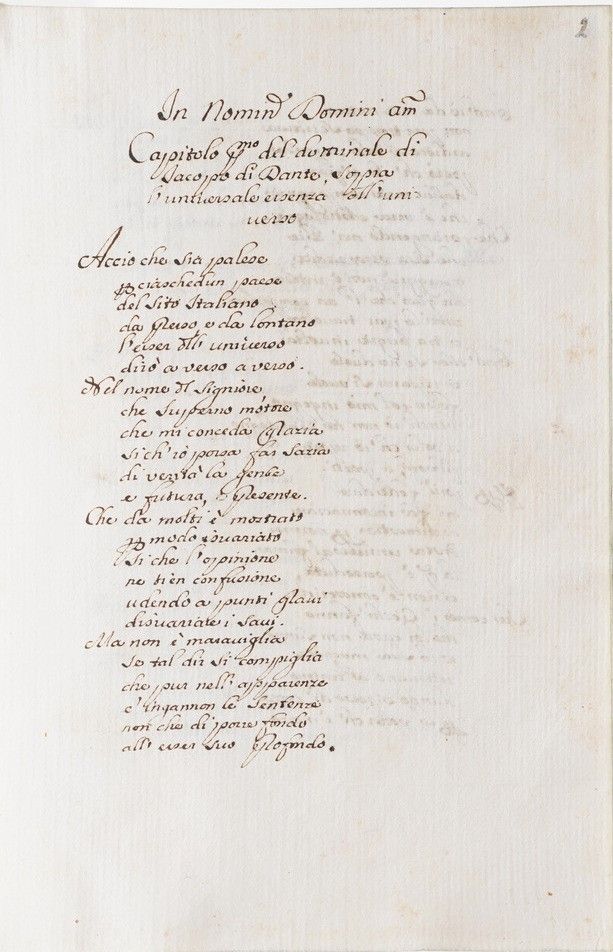 2
In Nomine Domini am
Cappitolo pmo del dottrinale di
Jacoppo di Dante, soppra
l'universale essenza dell' uni
verso
Accio che sia palese
p ciaschedun paese
del sito Italiano
da presso, e da lontano
l'esser dell' universo
dirò a verso a verso.
Nel nome del Signiore
che supperno motore
che mi conceda grazia
sich' io possa far sazia
di verità la gente
e futura, e presente.
Che da molti è mostrato
p modo isvariato
si che l'oppinione
ne tien confusione
udendo a punti gravi
disvariate i savi.
Ma non è maraviglia
se tal dir si compiglia
che pur nell' apparenze
s' ingannon le sentenze
non che di porre fondo
all' esser suo profondo.